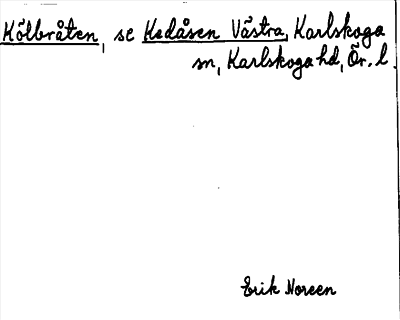 Kölbråten, se Kedåsen Västra, Karlskoga
sn, Karlskoga hd, Ör. l.
Erik Noreen